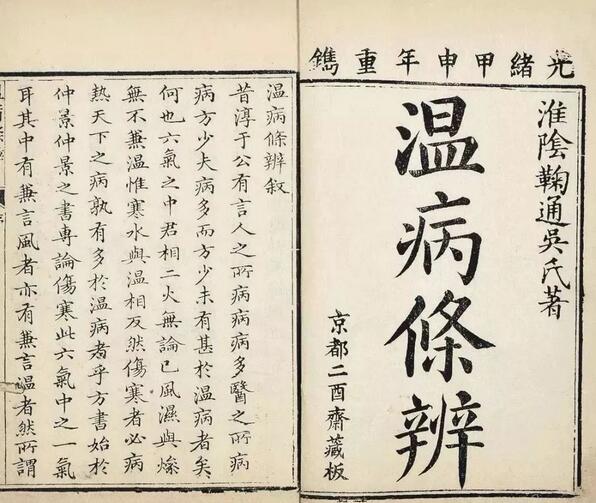 光緒甲申年重鐫
淮陰鞠通吳氏著
温病條辨
京都二酉齋藏板
温病條辨叙
昔淳于公有言人之所病病病多醫之所病
病方少夫病多而方少未有甚於温病者矣
何也六氣之中君相二火無論已風濕與燥
無不兼温惟寒水與温相反然傷寒者必病
熱天下之病孰有多於温病者乎方書始於
仲景仲景之書專論傷寒此六氣中之一氣
耳其中有兼言風者亦有兼言温者然所謂